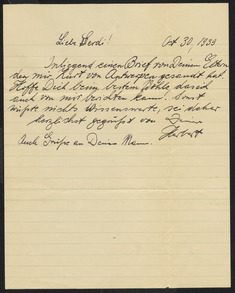 Liebe Gerdi! Oct 30, 1939
Inliegend einen Brief von Deinen Eltern
den mir Kurt von Antwerpen gesandt hat.
Hoffe Dich beim besten Wohle das ich
auch von mir berichten kann. Sonst
wüßte nichts Wissenswerte, sei daher
herzlichst gegrüßt von Deine
Herbert
Auch Grüße an Deine Mann.